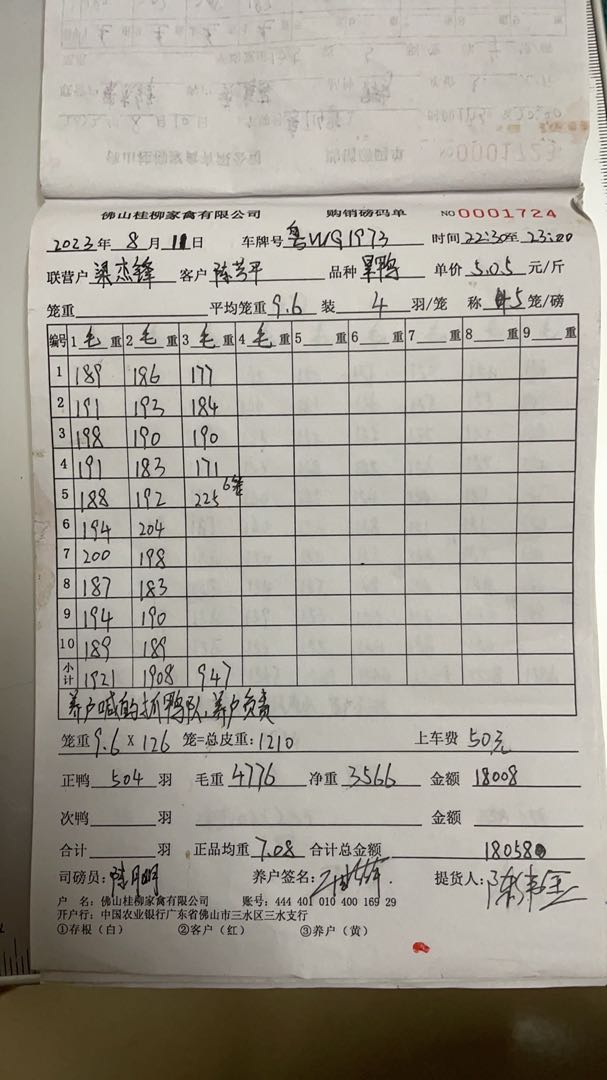 佛山桂柳家禽有限公司 购销磅码单 NO 0001724
2023年 8 月 11 日 车牌号 粤WG1973 时间 22:30至 23:00
联营户 梁杰锋 客户 陈芳平 品种 单价 5.05 元/斤
笼重 平均笼重 9.6 装 4 羽/笼 称 5 笼/磅
编号 1 毛 重 2 毛 重 3 毛 重 4 毛 重 5 重 6 重 7 重 8 重 9 重
1 189 186 177
2 191 193 184
3 198 190 190
4 191 183 171
5 188 192 225 6笼
6 194 204
7 200 198
8 187 183
9 194 190
10 189 189
小计 1921 1908 947
养户喊的抓鸭队,养户负责
笼重 9.6 X 126 笼=总皮重: 1210 上车费 50元
正鸭 504 羽 毛重 4776 净重 3566 金额 18008
次鸭 羽 金额
合计 羽 正品均重 7.08 合计总金额 18058
司磅员: 养户签名: 提货人:
户 名: 佛山桂柳家禽有限公司 账号: 444 401 010 400 169 29
开户行: 中国农业银行广东省佛山市三水区三水支行
①存根（白） ②客户（红） ③养户（黄）